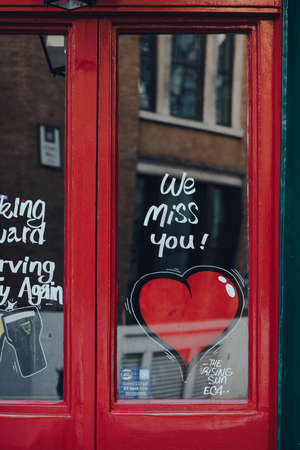 king
ward
rving
y Again
We
miss
you!
-THE
RISING
SUN
EC1-